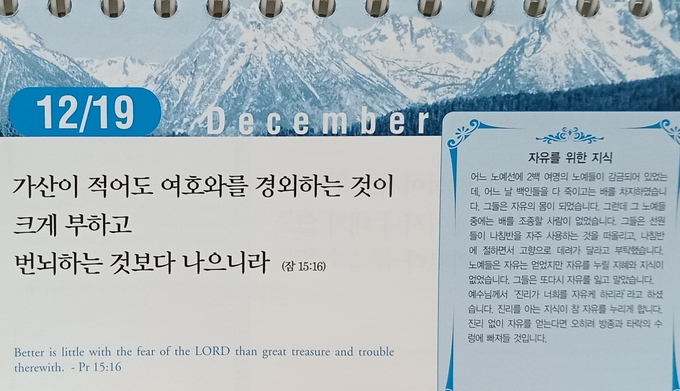 12/19
December
가산이 적어도 여호와를 경외하는 것이
크게 부하고
번뇌하는 것보다 나으니라 (잠 15:16)
Better is little with the fear of the LORD than great treasure and trouble
therewith. - Pr 15:16
자유를 위한 지식
어느 노예선에 2백 여명의 노예들이 감금되어 있었는
데, 어느 날 백인들을 다 죽이고는 배를 차지하였습니
다. 그들은 자유의 몸이 되었습니다. 그런데 그 노예들
중에는 배를 조종할 사람이 없었습니다. 그들은 선원
들이 나침반을 자주 사용하는 것을 떠올리고, 나침반
에 절하면서 고향으로 데려가 달라고 부탁했습니다.
노예들은 자유는 얻었지만 자유를 누릴 지혜와 지식이
없었습니다. 그들은 또다시 자유를 잃고 말았습니다.
예수님께서 '진리가 너희를 자유케 하리라'라고 하셨
습니다. 진리를 아는 지식이 참 자유를 누리게 합니다.
진리 없이 자유를 얻는다면 오히려 방종과 타락의 수
렁에 빠져들 것입니다.